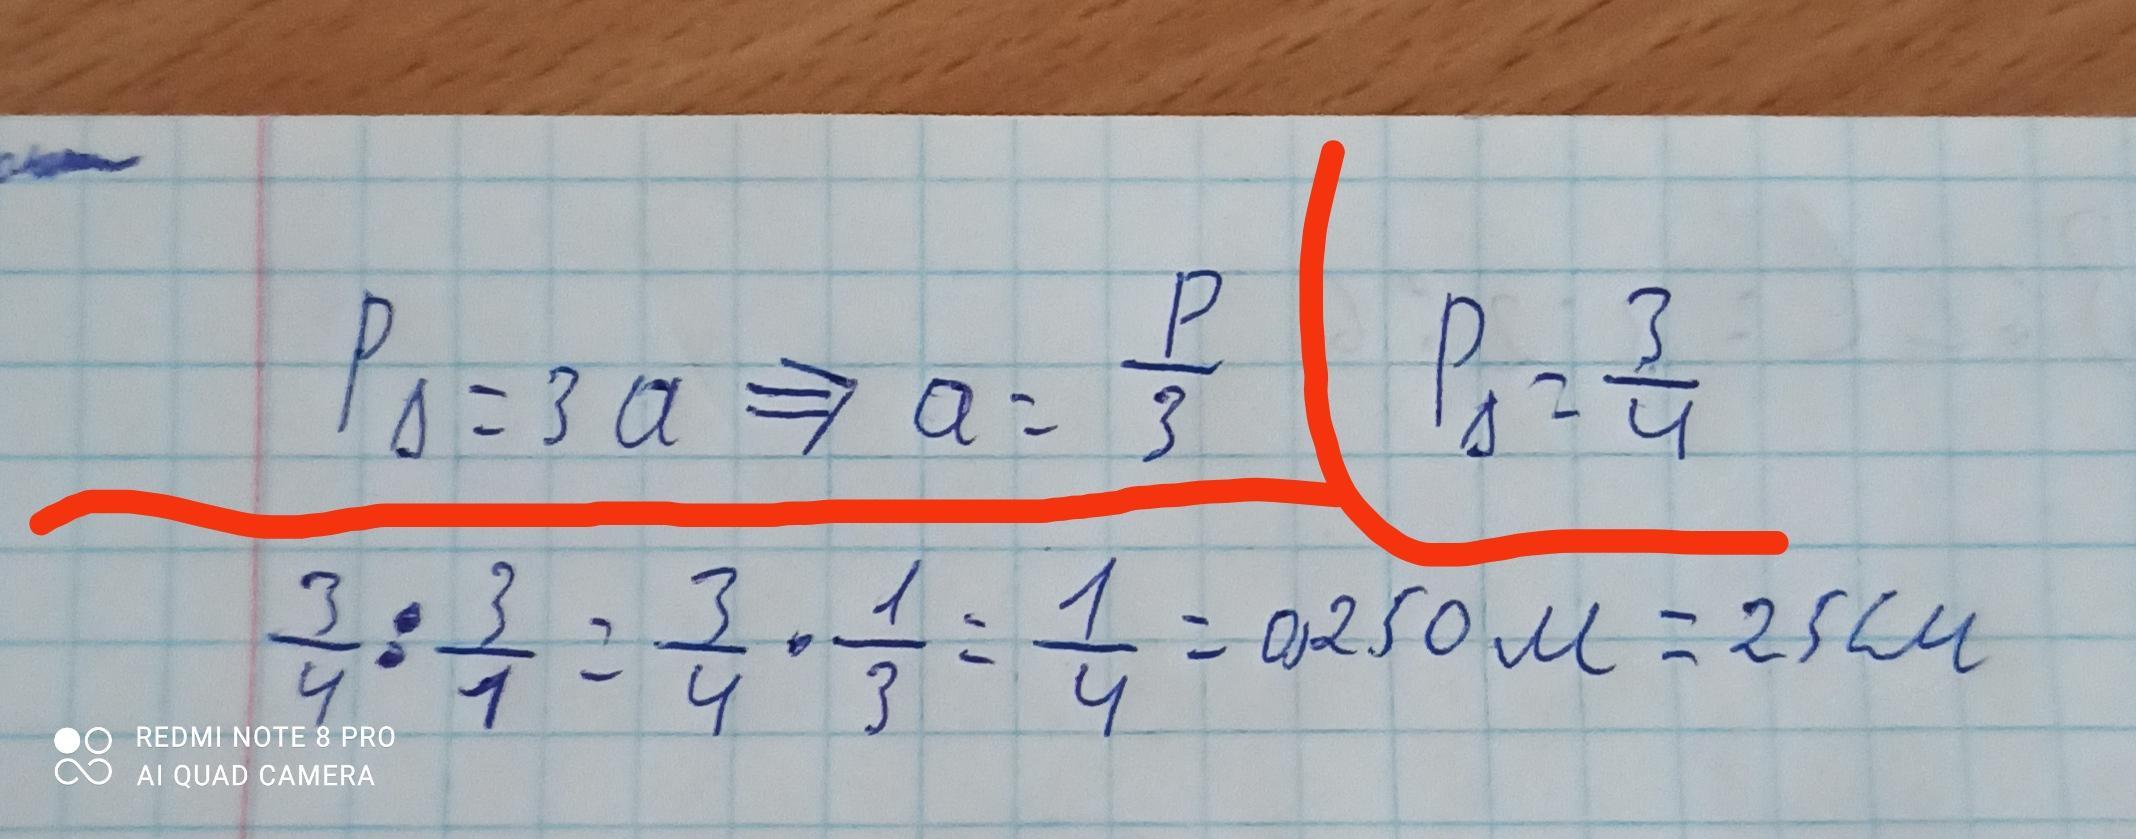 P△ = 3a ⇒ a = P/3
P△ = 3/4
3/4 : 3/1 = 3/4 · 1/3 = 1/4 = 0,250 м = 25 см
REDMI NOTE 8 PRO
AI QUAD CAMERA